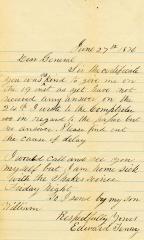 June 27th 1876
Dear General
For the certificate
you was kind to give me on
the 19 inst as yet have not
received any answer on the
24th I wrote to the Comptroller
in regard to the
no answer. Please find out
the cause of delay
I would call and see you
myself but I am home sick
with the
Friday Night
So I send by my son
William
Respectfully Yours
Edward